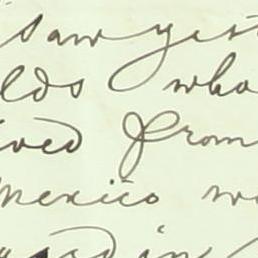 saw yest
lds who
ived from
Mexico w
in